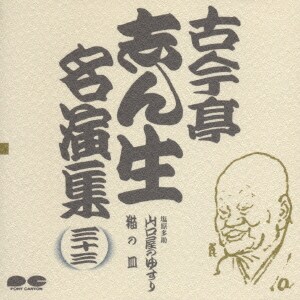 古今亭
志ん生
名演集
三十三
塩原多助
山口屋のゆすり
猫の皿
PONY CANYON